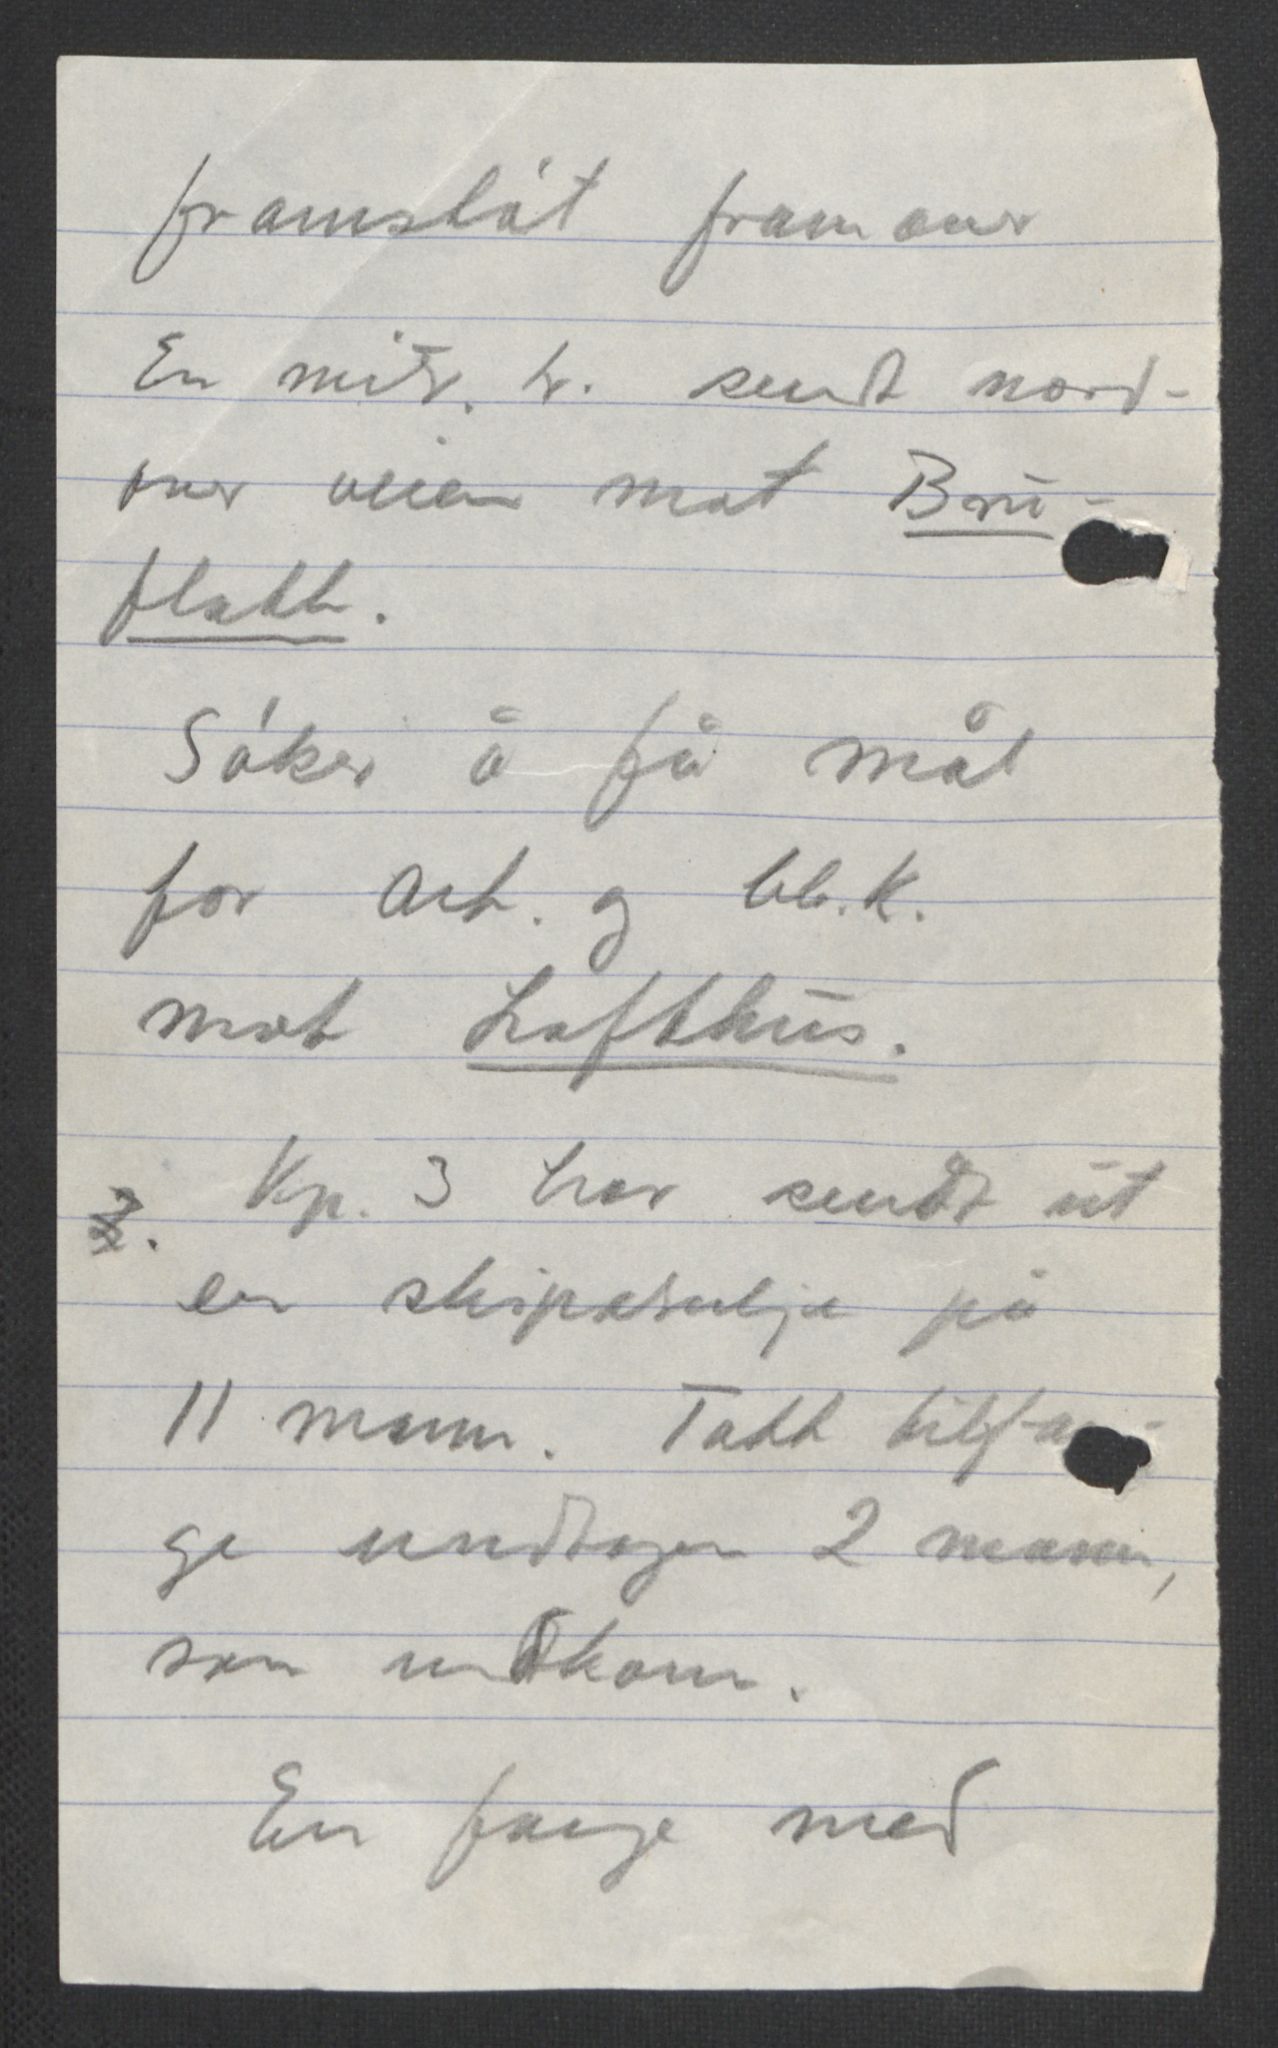 framstøt framover
En mitr. tr. sendt nord-
over veien mot Bru-
flatt.
Søker å få mål
for art. og bb.k.
mot Lofthus.
2. Kp. 3 har sendt ut
en skipatrulje på
11 mann. Tatt tilfan-
ge undtagen 2 mann,
som undkom.
En fange med